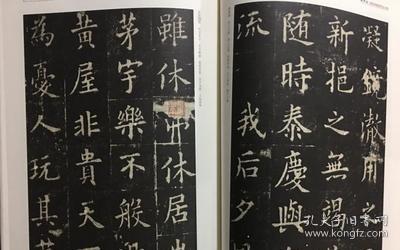 凝鏡澈用之
新挹之無
随時泰慶與
流我后夕
雖休弗休居
茅宇樂不般
黃屋非貴天
為憂人玩其
孔夫子旧书网
www.kongfz.com